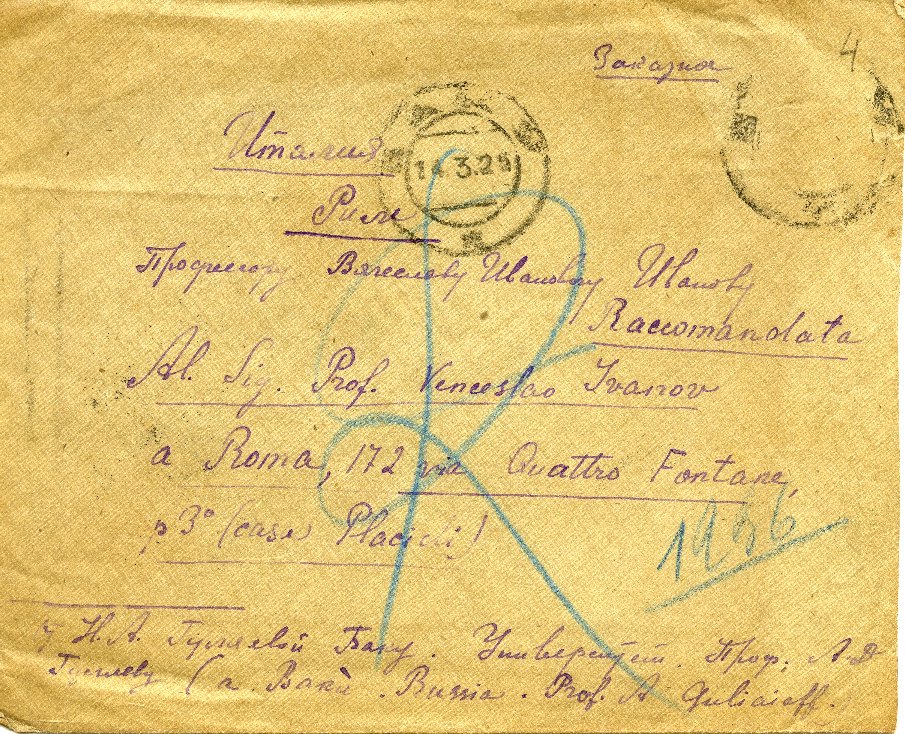 4
Заказное
Италия
14.3.25
Рим
Профессору Вячеславу Ивановичу Иванову
Raccomandata
Al. Sig. Prof. Venceslao Ivanov
a Roma, 172 via Quattro Fontane,
p 3° (casa Placidi)
R
Н. А. Гуляевой Баку. Университет. Проф. А Д
Гуляеву (a Bakù. Russia. Prof. A Guliaieff.)